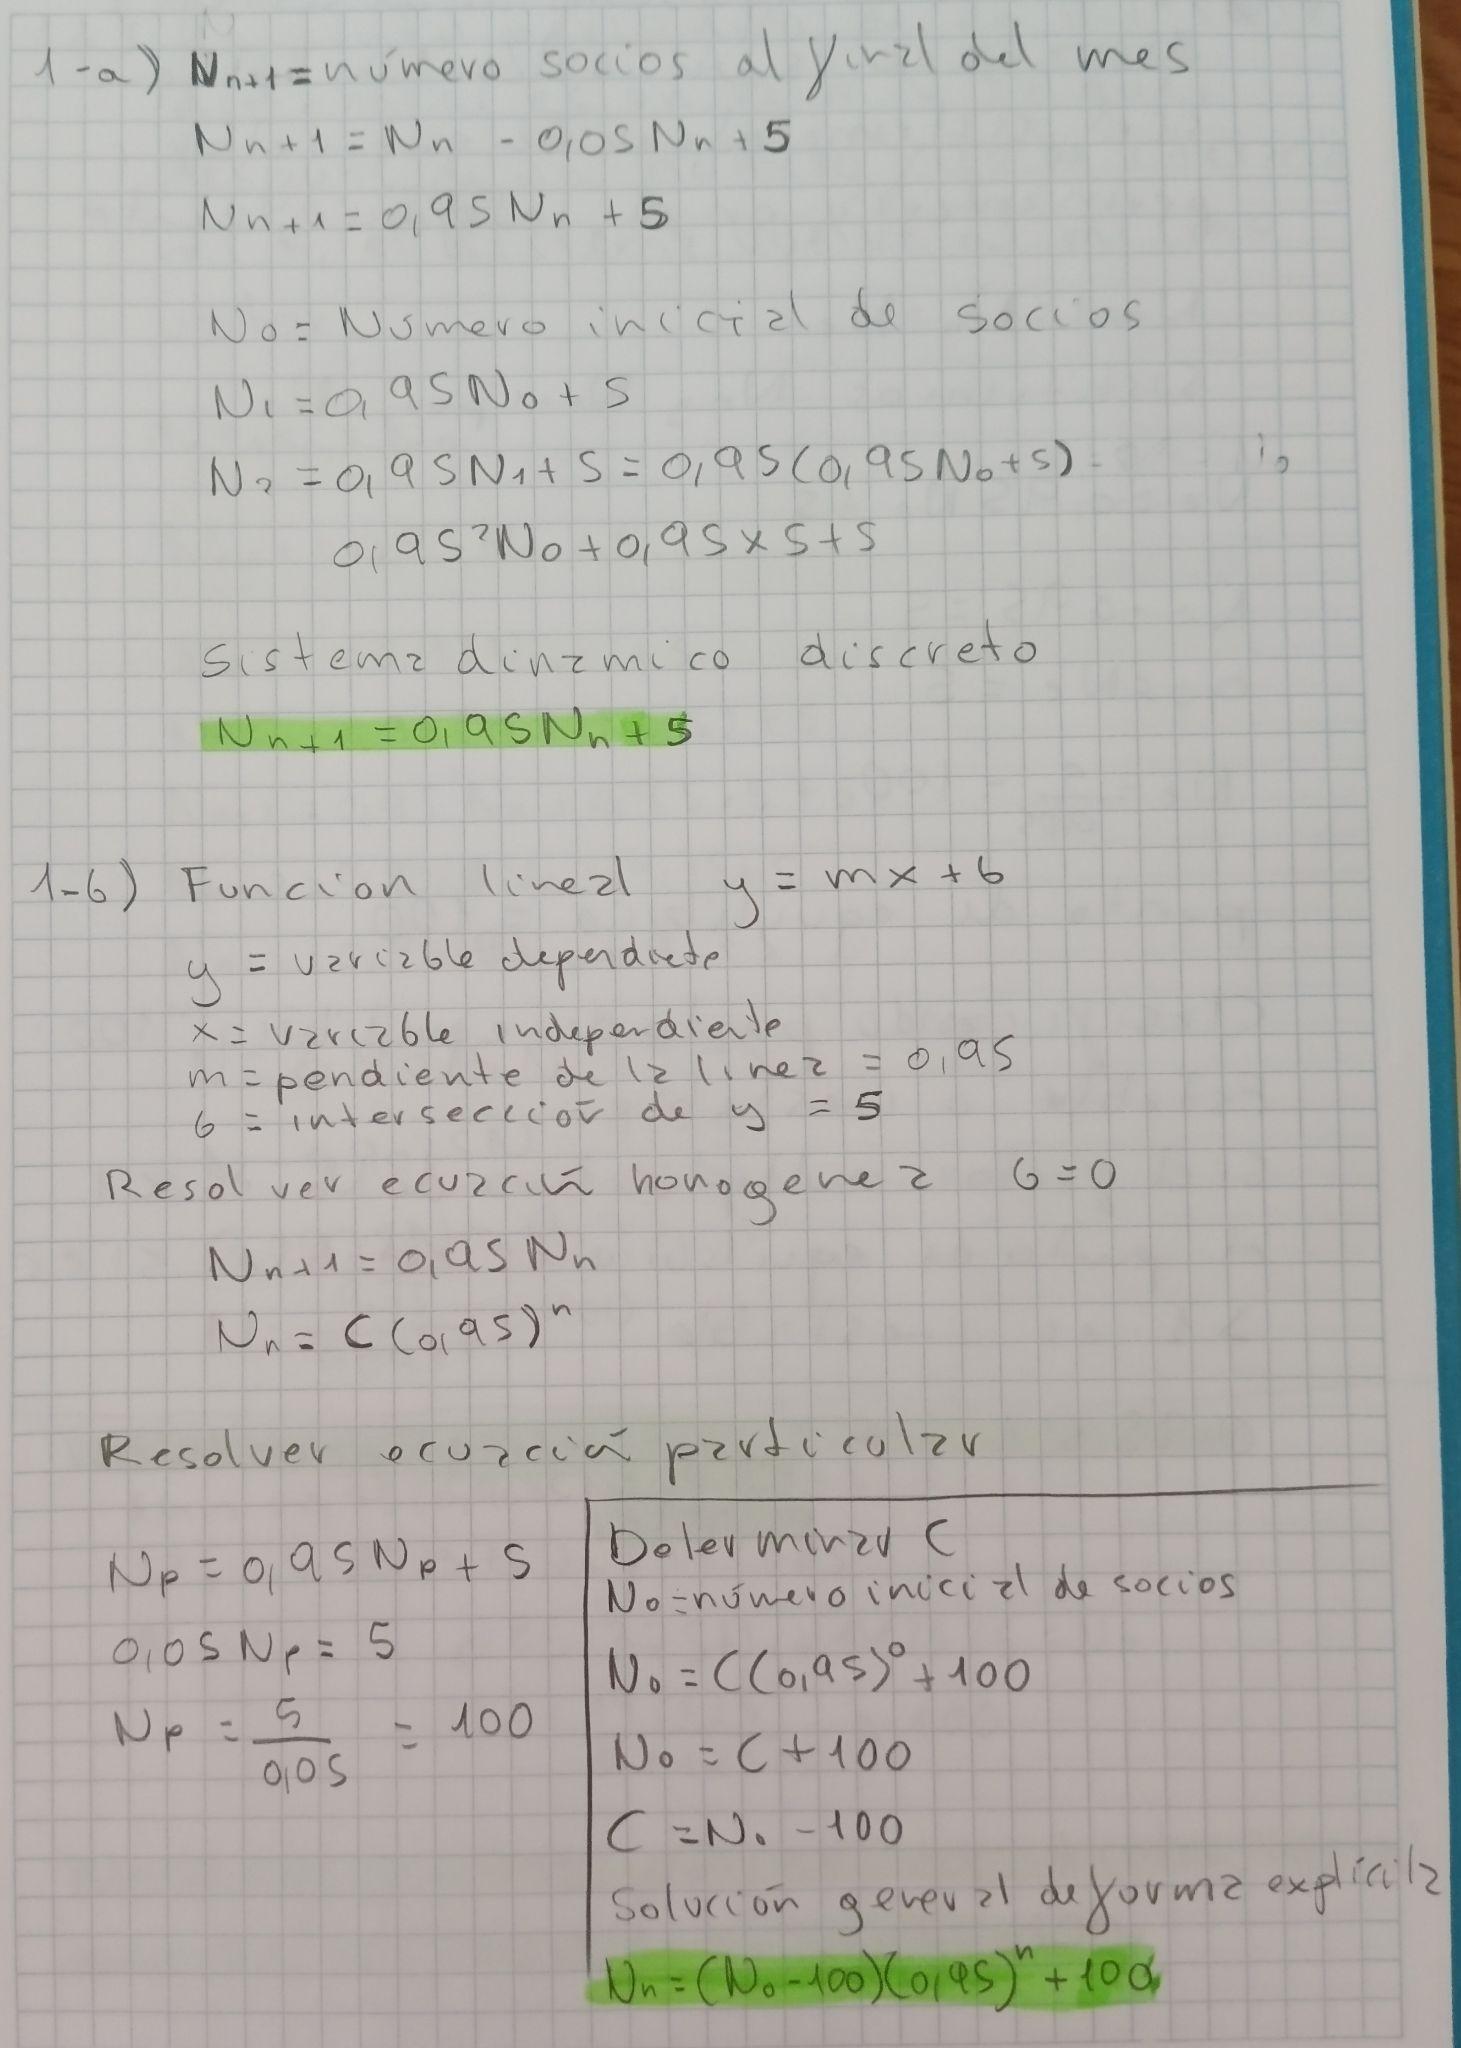 1-a) Nn+1 = número socios al final del mes
Nn+1 = Nn - 0,05 Nn + 5
Nn+1 = 0,95 Nn + 5
N0 = Número inicial de socios
N1 = 0,95N0 + 5
N2 = 0,95N1 + 5 = 0,95(0,95N0+5)
0,95²N0 + 0,95 x 5 + 5
Sistema dinamico discreto
Nn+1 = 0,95Nn + 5
1-b) Funcion lineal y = mx + b
y = variable dependiete
x = variable independiente
m = pendiente de la linea = 0,95
b = intersección de y = 5
Resolver ecuación honogenea b = 0
Nn+1 = 0,95 Nn
Nn = C(0,95)ⁿ
Resolver ecuación particular
Np = 0,95Np + 5
0,05 Np = 5
Np = 5/0,05 = 100
Determinar C
N0 = número inicial de socios
N0 = C(0,95)⁰ + 100
N0 = C + 100
C = N0 - 100
Solución general de forma explícita
Nn = (N0 - 100)(0,95)ⁿ + 100